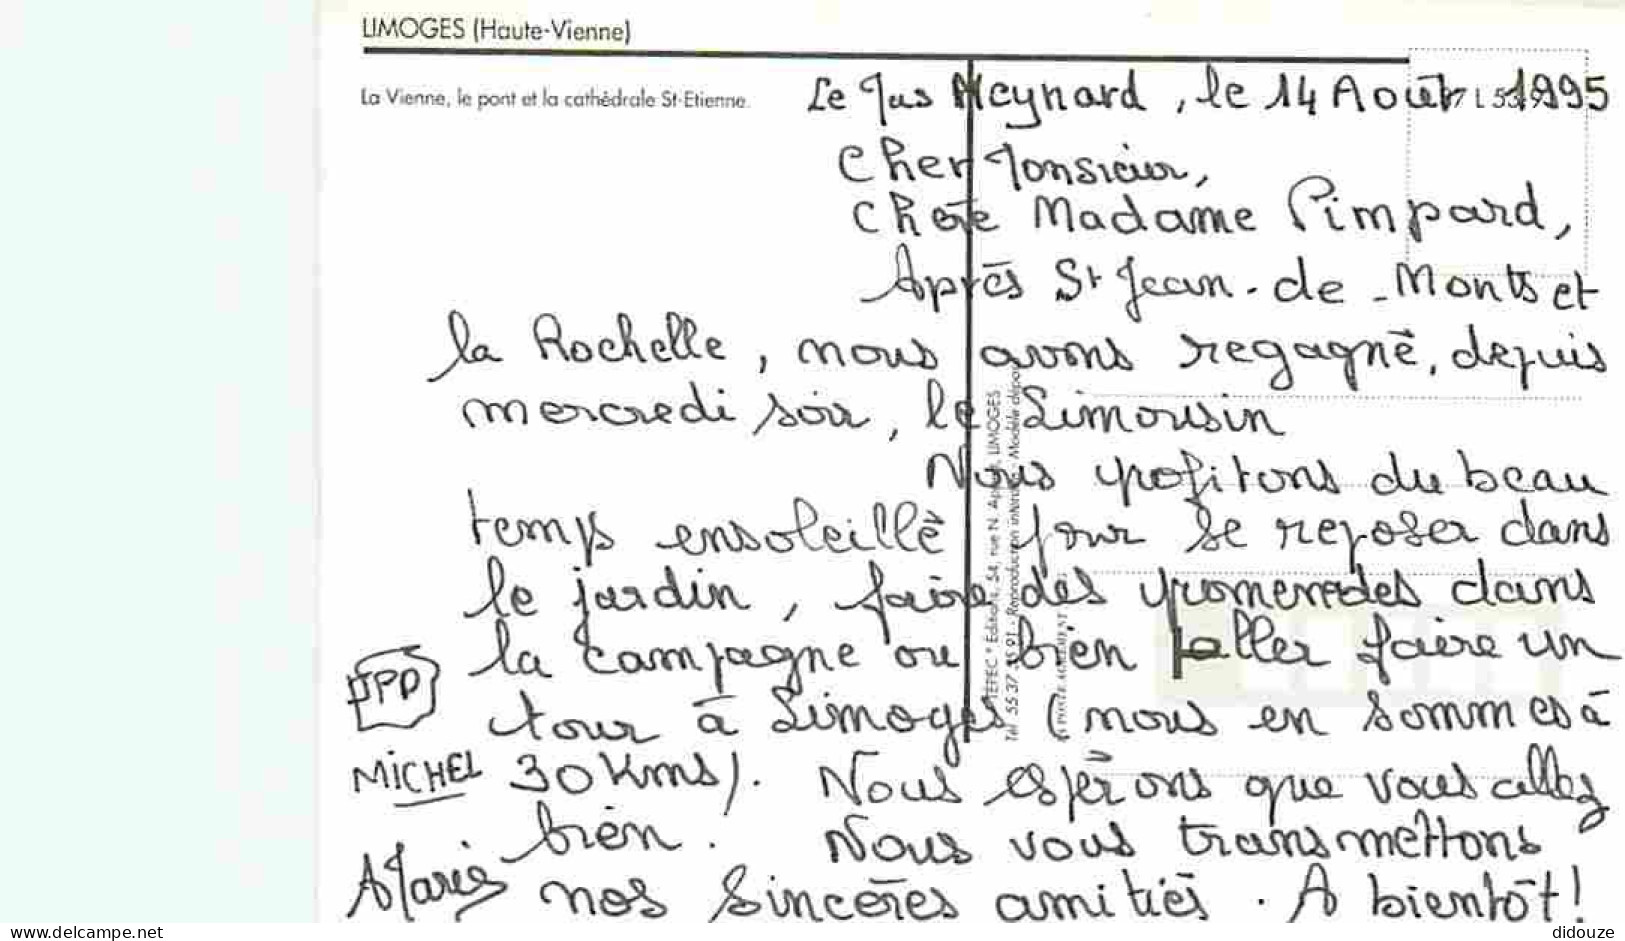 LIMOGES (Haute-Vienne)
La Vienne, le pont et la cathédrale St-Etienne.
Le Jas Meynard, le 14 Août 1995
Cher Monsieur,
Chère Madame Pimpard,
Après St Jean-de-Monts et
la Rochelle, nous avons regagné, depuis
mercredi soir, le Limousin
Nous profitons du beau
temps ensoleillé pour se reposer dans
le jardin, faire des promenades dans
la campagne ou bien aller faire un
tour à Limoges (nous en sommes à
30 Kms). Nous espérons que vous allez
bien. Nous vous transmettons
nos sincères amitiés. A bientôt!
JPD
MICHEL
Marie
Editions, 54, rue N. LIMOGES
Reproduction
delcampe.net
didouze